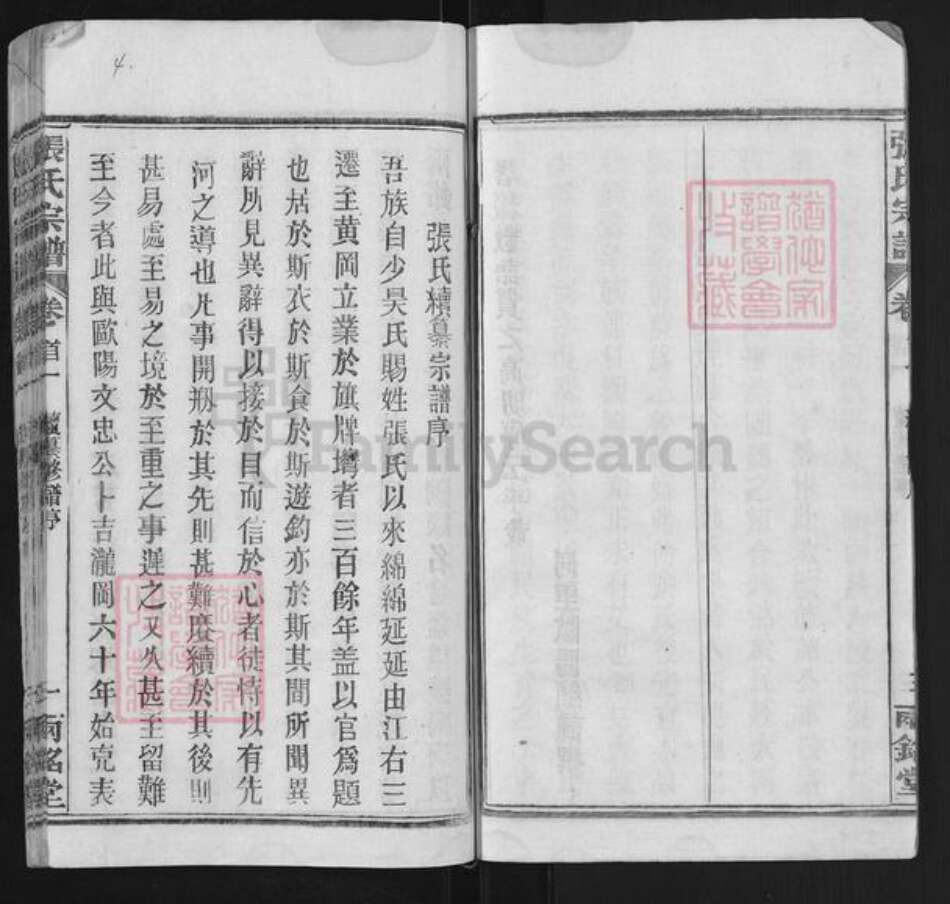 張氏宗譜
卷
三
兩銘堂
猶他家譜學會收藏
張氏續纂宗譜序
吾族自少昊氏賜姓張氏以來綿綿延延由江右三
遷至黃岡立業於旗牌塆者三百餘年盖以官爲題
也居於斯衣於斯食於斯遊釣亦於斯其間所聞異
辭所見異辭得以接於目而信於心者徒恃以有先
河之導也凡事開剏於其先則甚難賡續於其後則
甚易處至易之境於至重之事遲之又久甚至留難
至今者此與歐陽文忠公卜吉瀧岡六十年始克表
張氏宗譜
卷首一
續纂修譜序
一
兩銘堂
猶他家譜學會收藏
4.
FamilySearch